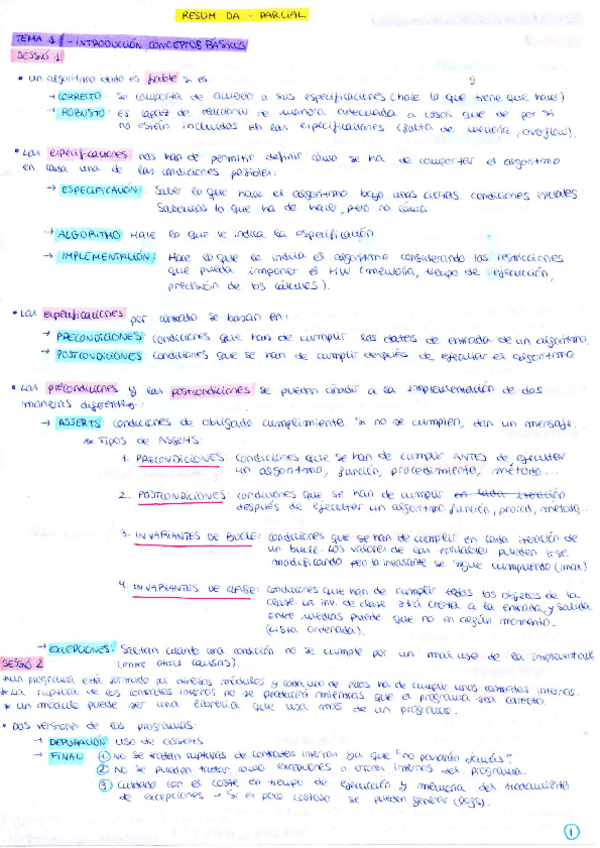 RESUM DA - PARCIAL
TEMA 1 - INTRODUCCIÓN, CONCEPTOS BÁSICOS
SESSIÓ 1
• Un algoritmo dado es fiable si es:
→ CORRECTO: se comporta de acuerdo a sus especificaciones (hace lo que tiene que hacer)
→ ROBUSTO: es capaz de reaccionar de manera adecuada a casos que de por si
no están incluidos en las especificaciones (falta de memoria, overflow).
• Las especificaciones nos han de permitir definir cómo se ha de comportar el algoritmo
en cada una de las condiciones posibles:
→ ESPECIFICACIÓN: Saber lo que hace el algoritmo bajo unas ciertas condiciones iniciales
Sabemos lo que ha de hacer, pero no cómo.
→ ALGORITMO: Hace lo que le indica la especificación.
→ IMPLEMENTACIÓN: Hace lo que le indica el algoritmo considerando las restricciones
que pueda imponer el HW (memoria, tiempo de ejecución,
precisión de los cálculos).
• Las especificaciones por contrato se basan en:
→ PRECONDICIONES: condiciones que han de cumplir los datos de entrada de un algoritmo.
→ POSTCONDICIONES: condiciones que se han de cumplir después de ejecutar el algoritmo
• Las precondiciones y las postcondiciones se pueden añadir a la implementación de dos
maneras diferentes:
→ ASSERTS: condiciones de obligado cumplimiento. Si no se cumplen, dan un mensaje.
Tipos de Asserts:
1. PRECONDICIONES: condiciones que se han de cumplir ANTES de ejecutar
un algoritmo, función, procedimiento, método...
2. POSTCONDICIONES: condiciones que se han de cumplir en cada iteración
después de ejecutar un algoritmo, función, proced, método...
3. INVARIANTES DE BUCLE: condiciones que se han de cumplir en cada iteración de
un bucle. Los valores de las variables pueden irse
modificando pero la invariante se sigue cumpliendo (max)
4. INVARIANTES DE CLASE: condiciones que han de cumplir todos los objetos de la
clase. La inv. de clase será cierta a la entrada y salida.
Entre medias puede que no en algún momento.
(Lista ordenada).
→ EXCEPCIONES: Saltan cuando una condición no se cumple por un mal uso de la
(entre otras causas).
SESSIÓ 2
* Un programa está formado por diversos módulos y cada uno de ellos ha de cumplir unos contratos internos.
* La ruptura de los contratos internos no se producirá mientras que el programa sea correcto.
* Un módulo puede ser una librería que usa más de un programa.
• Dos versiones de los programas:
→ DEPURACIÓN: uso de asserts
→ FINAL: 1 No se tratan rupturas de contratos internos ya que "no pasarán
2 No se pueden tratar como excepciones o errores internos del programa.
3 Cuidado con el coste en tiempo de ejecución y memoria del tratamiento
de excepciones → Si es poco costoso se pueden generar (logs).
1